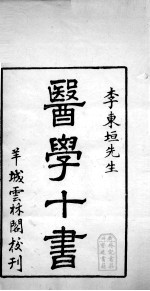 李東垣先生
醫學十書
羊城雲林閣校刊